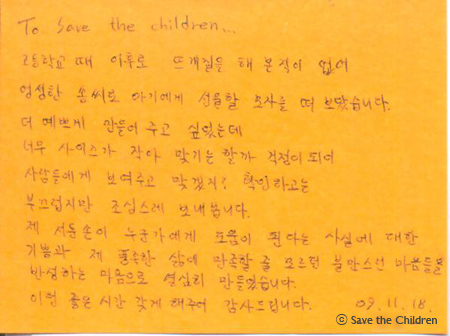 To Save the children...
고등학교 때 이후로 뜨개질을 해 본적이 없어
엉성한 솜씨로 아기에게 선물할 모자를 떠 보았습니다.
더 예쁘게 만들어 주고 싶었는데
너무 사이즈가 작아 맞기는 할까 걱정이 되어
사람들에게 보여주고 맞겠지? 확인하고는
부끄럽지만 조심스레 보내봅니다.
제 서툰손이 누군가에게 도움이 된다는 사실에 대한
기쁨과 제 풍족한 삶에 만족할 줄 모르던 불만스런 마음들을
반성하는 마음으로 열심히 만들었습니다.
이런 좋은 시간 갖게 해주어 감사드립니다. 09.11.18.
© Save the Children